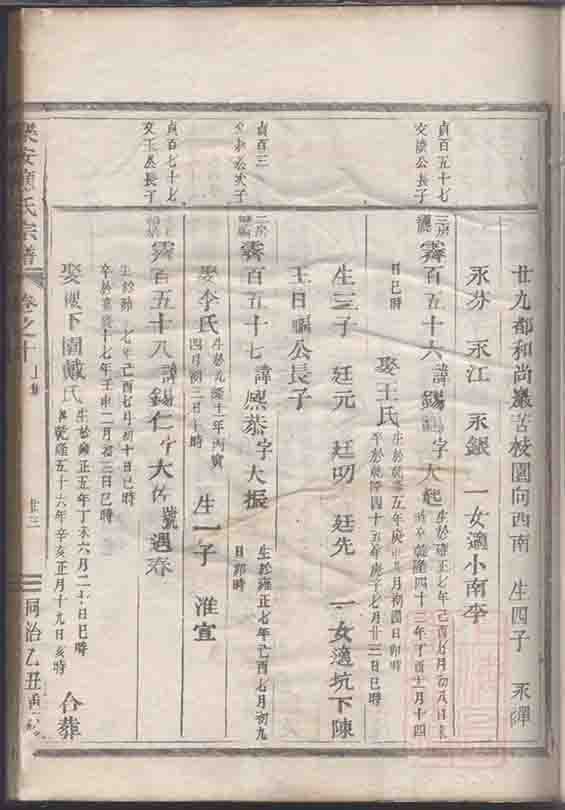 廿九都和尚巖苦枝園向西南 生四子 永禪
永芬 永江 永銀 一女適小南李
貞百五十七
文 公長子
三房
霽百五十六 諱錫 字大起 生於雍正七年己酉 月初八日
乾隆四十三年丁酉十一月十四
日巳時 娶王氏 生於 五年庚 月初四日卯時
卒於乾隆四十五年庚子七月廿三日巳時
生三子 廷元 廷叨 廷先 一女適坑下陳
王日 公長子
貞百三
公次子
二房
霽百五十七 諱熙恭 字大振 生於雍正七年己酉七月初九
日卯時
娶李氏 生於乾隆十一年丙寅
四月初三日 時 生一子 淮宣
貞百七十七
文 公長子
霽百五十八 諱錫仁 字大佐 號遇春
生於雍 七年己酉七月初十日巳時
卒於 十七年壬申二月初三日巳時
娶樓下園戴氏 生於雍正五年丁未六月二十 日巳時
乾隆五十六年辛亥正月十九日亥時 合葬
樂安 氏宗譜 卷之十 上 廿三 同治乙丑重